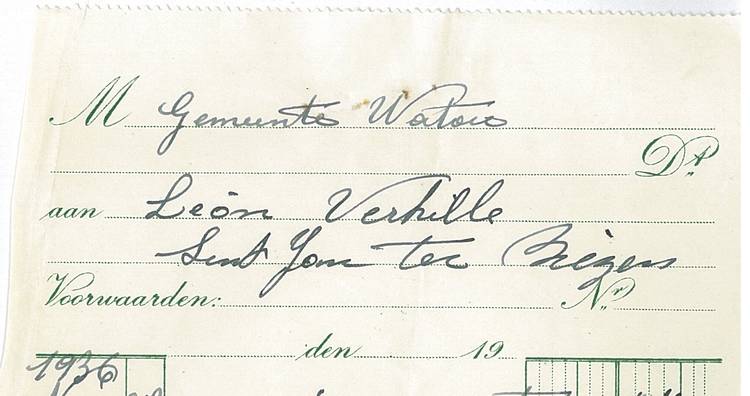 M Gemeente Watou
Dt
aan Léon Verhille
Sint Jan ter Biezen
Voorwaarden: Nr
den 19
1936